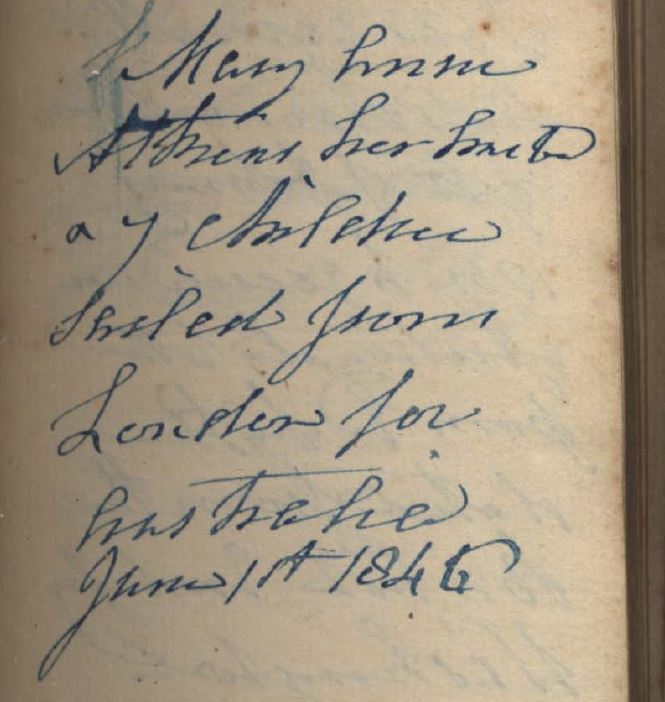 Mary Anne
Atkins her husb
a 7 Children
Sailed from
London for
Australia
June 1st 1846